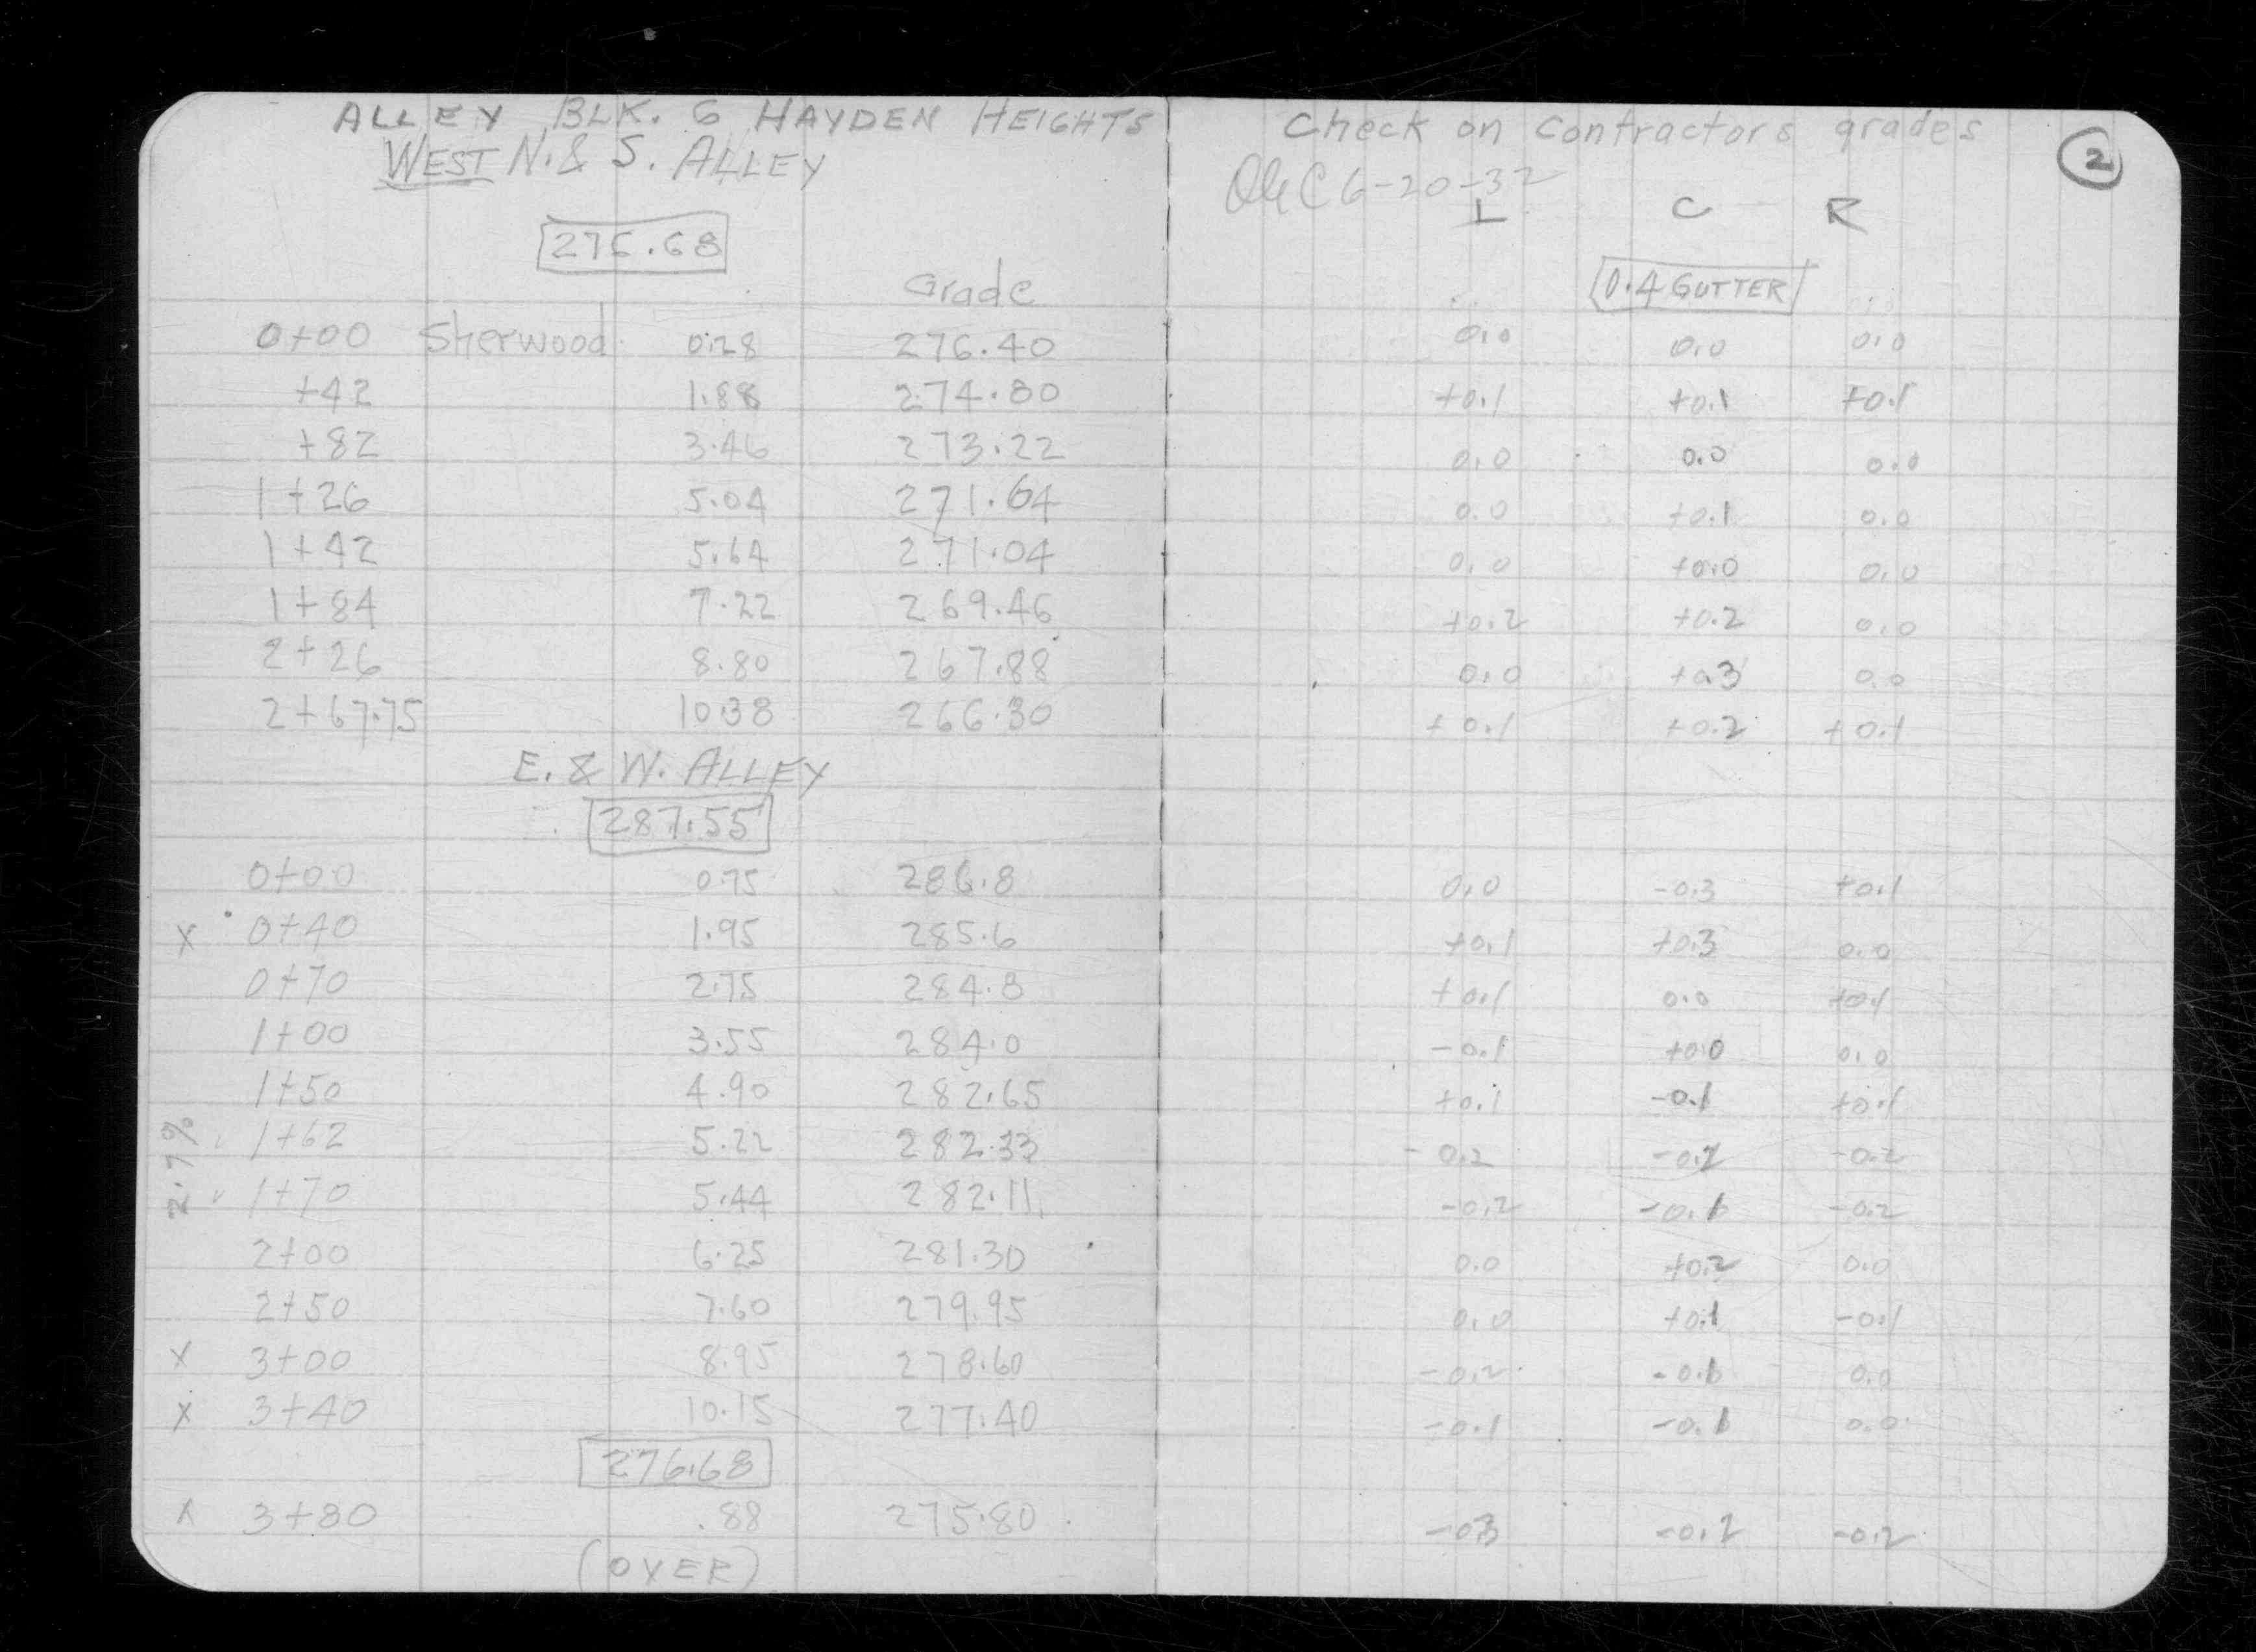 ALLEY BLK. 6 HAYDEN HEIGHTS
WEST N. & S. ALLEY
276.68
Grade
0+00 Sherwood 0.28 276.40
+42 1.88 274.80
+82 3.46 273.22
1+26 5.04 271.64
1+42 5.64 271.04
1+84 7.22 269.46
2+26 8.80 267.88
2+67.75 10.38 266.30
E. & W. ALLEY
287.55
0+00 0.75 286.8
x 0+40 1.95 285.6
0+70 2.75 284.8
1+00 3.55 284.0
1+50 4.90 282.65
2.7%
1+62 5.22 282.33
1+70 5.44 282.11
2+00 6.25 281.30
2+50 7.60 279.95
x 3+00 8.95 278.60
x 3+40 10.15 277.40
276.68
x 3+80 .88 275.80
(OVER)
Check on Contractors grades
2
6-20-32
L C R
0.4 GUTTER
0.0 0.0 0.0
+0.1 +0.1 +0.1
0.0 0.0 0.0
0.0 +0.1 0.0
0.0 +0.0 0.0
+0.2 +0.2 0.0
0.0 +0.3 0.0
+0.1 +0.2 +0.1
0.0 -0.3 +0.1
+0.1 +0.3 0.0
+0.1 0.0 +0.1
-0.1 +0.0 0.0
+0.1 -0.1 +0.1
-0.2 -0.2 -0.2
-0.2 -0.1 -0.2
0.0 +0.2 0.0
0.0 +0.1 -0.1
-0.2 -0.1 0.0
-0.1 -0.1 0.0
-0.3 -0.2 -0.2